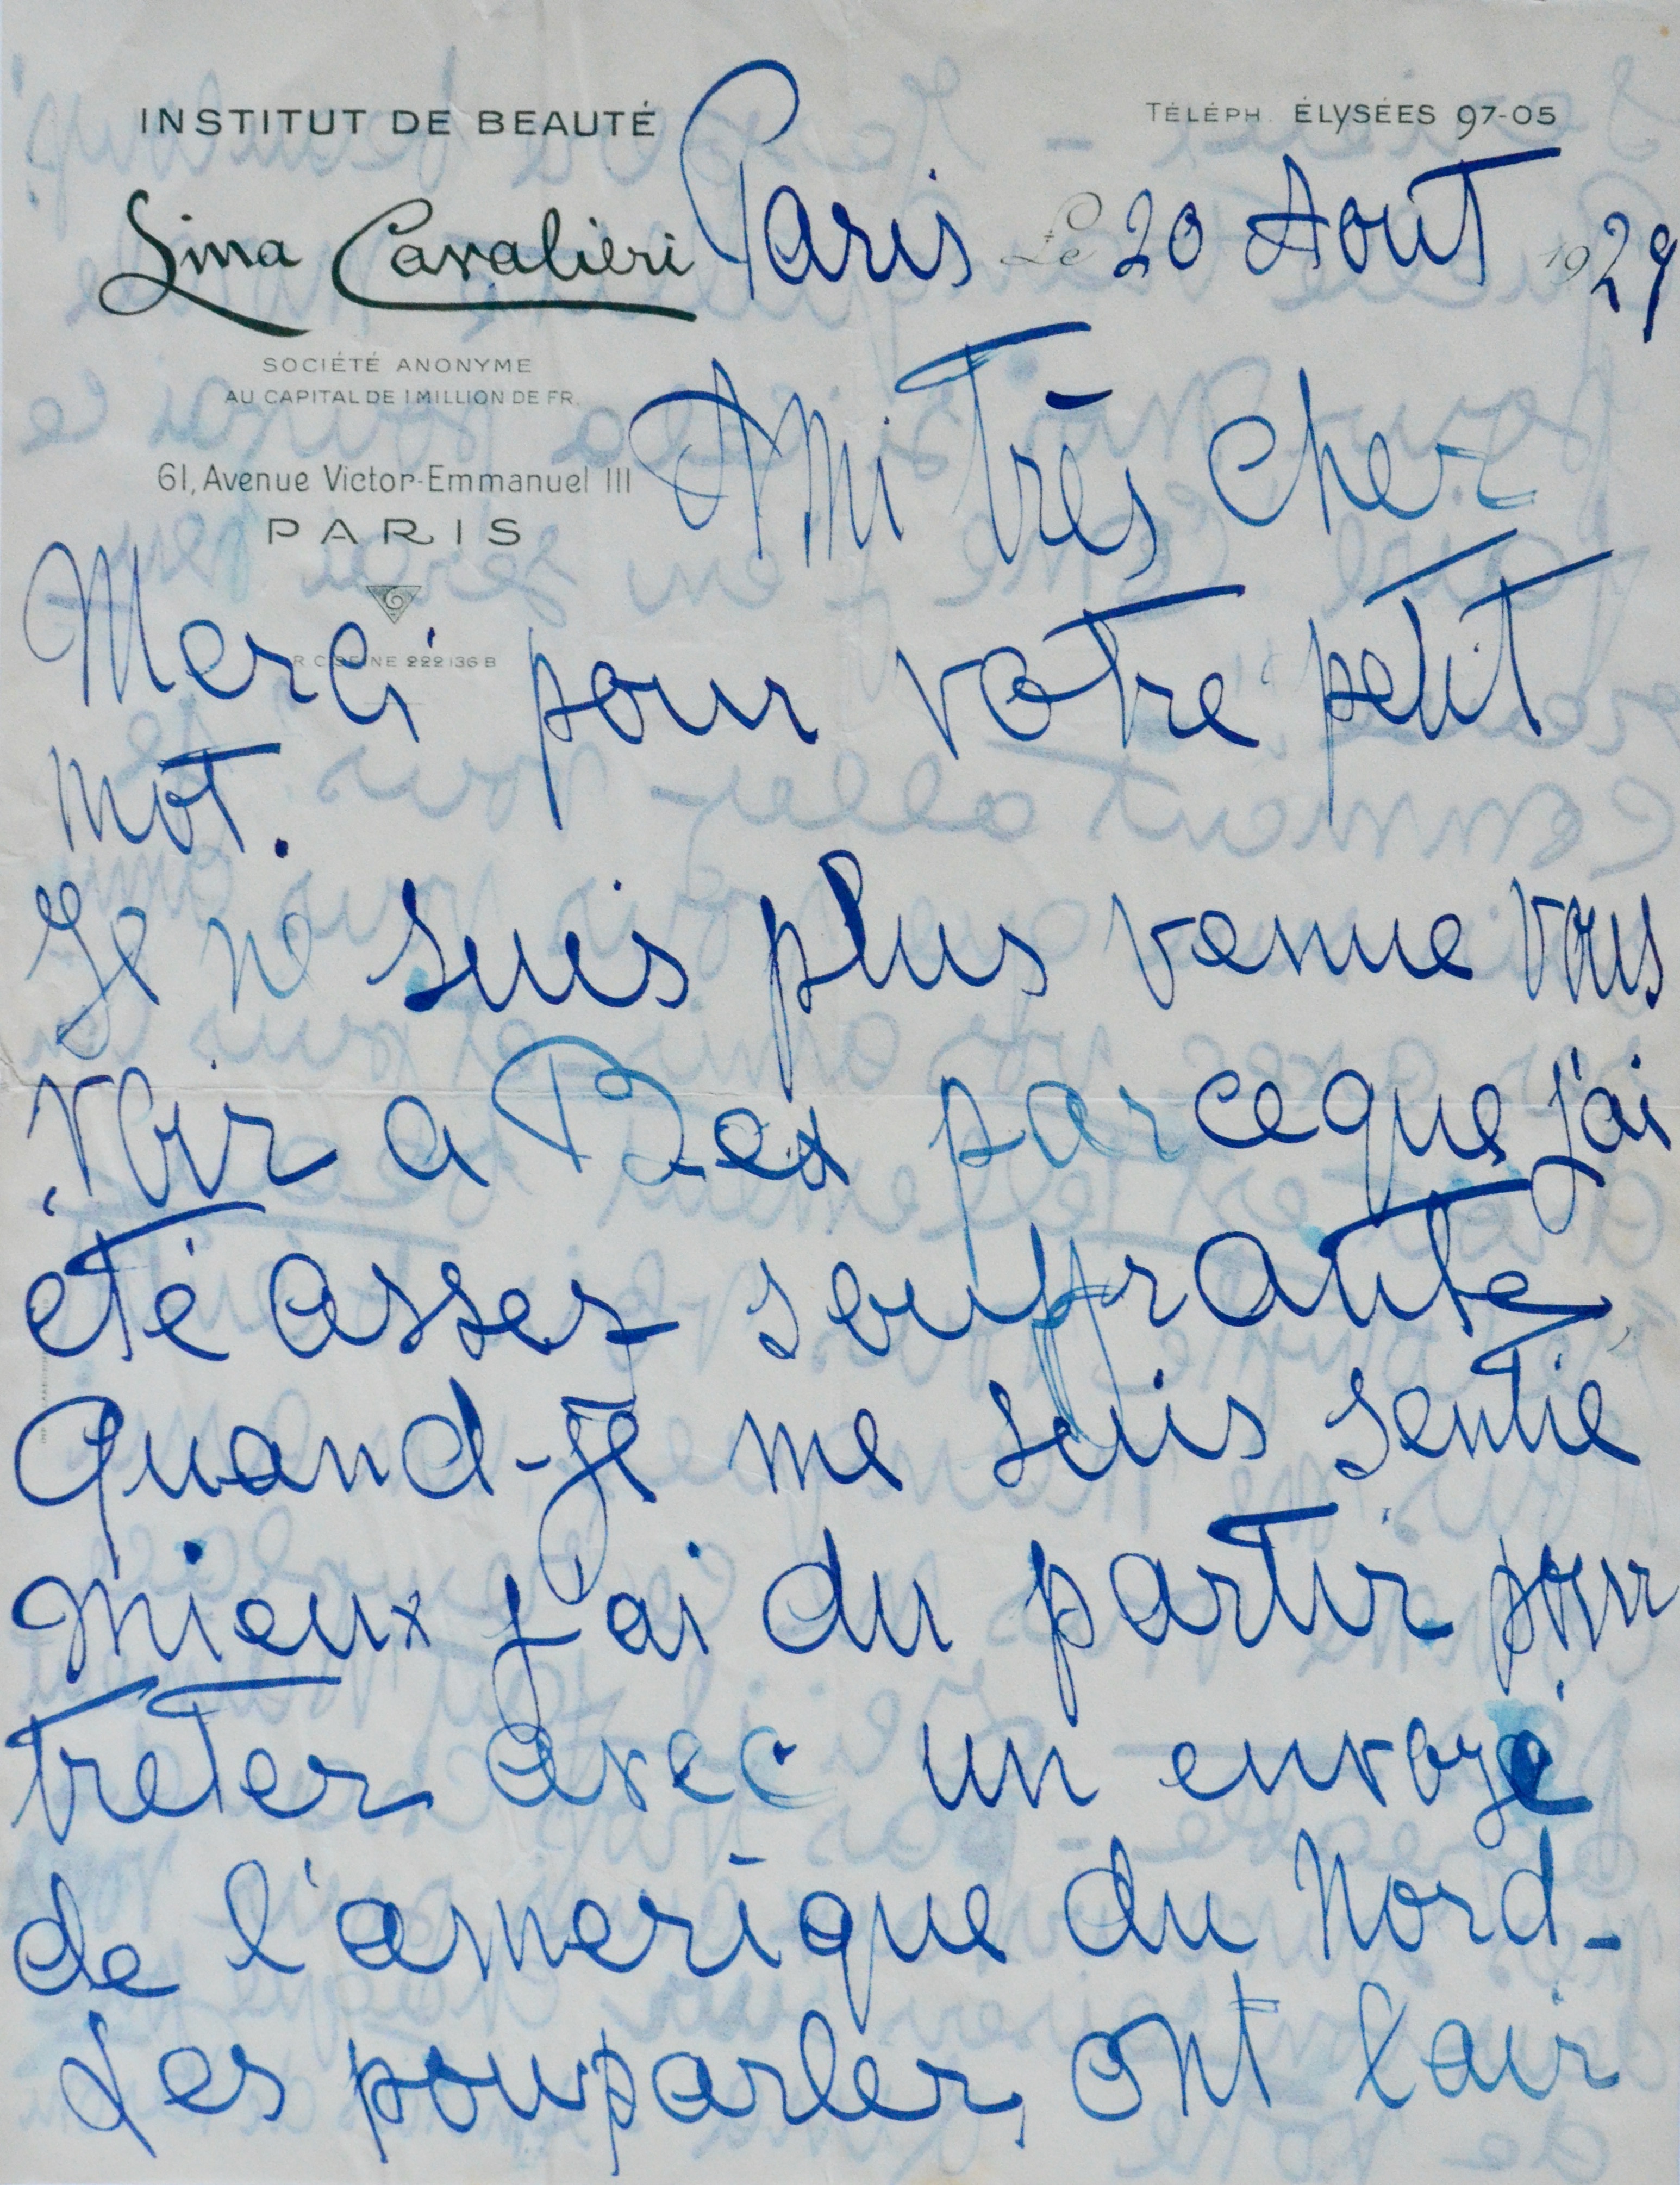 INSTITUT DE BEAUTÉ
TÉLÉPH. ÉLYSÉES 97-05
Lina Cavalieri
Paris Le 20 Aout 1929
SOCIÉTÉ ANONYME
AU CAPITAL DE 1 MILLION DE FR.
Ami très cher
61, Avenue Victor-Emmanuel III
PARIS
R.C. SEINE 222136 B
Merci pour votre petit
mot.
Je ne suis plus venue vous
voir a Bex parceque j'ai
été assez souffrante,
Quand-Je me suis sentie
mieux j'ai du partir pour
treter avec un envoyé
de l'amerique du Nord-
Les pouparler, ont lair